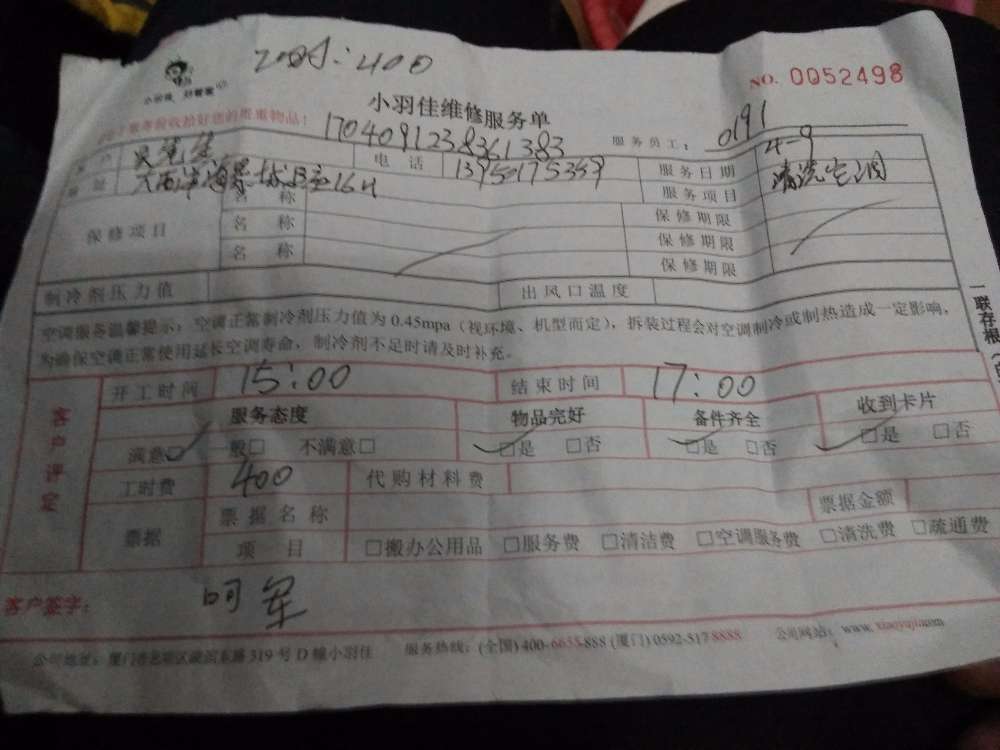 400
NO. 0052498
小羽佳 好管家
小羽佳维修服务单
1704091238361383
服务员工： 0191
客户 吴先生 电话 服务日期 4-9
地址 服务项目 清洗空调
保修项目 名称 保修期限
名称 保修期限
名称 保修期限
制冷剂压力值 出风口温度
空调服务温馨提示：空调正常制冷剂压力值为0.45mpa（视环境、机型而定），拆装过程会对空调制冷或制热造成一定影响，
为确保空调正常使用延长空调寿命，制冷剂不足时请及时补充。
一联存根
客户评定
开工时间 15:00 结束时间 17:00
服务态度 物品完好 备件齐全 收到卡片
满意□ 一般□ 不满意□ □是 □否 □是 □否 □是 □否
工时费 400 代购材料费
票据 票据名称 票据金额
项目 □搬办公用品 □服务费 □清洁费 □空调服务费 □清洗费 □疏通费
客户签字：
公司地址：厦门市思明区湖滨东路319号D幢小羽佳 服务热线：(全国)400-6655-888 (厦门)0592-5178888 公司网站：www.xiaoyujia.com